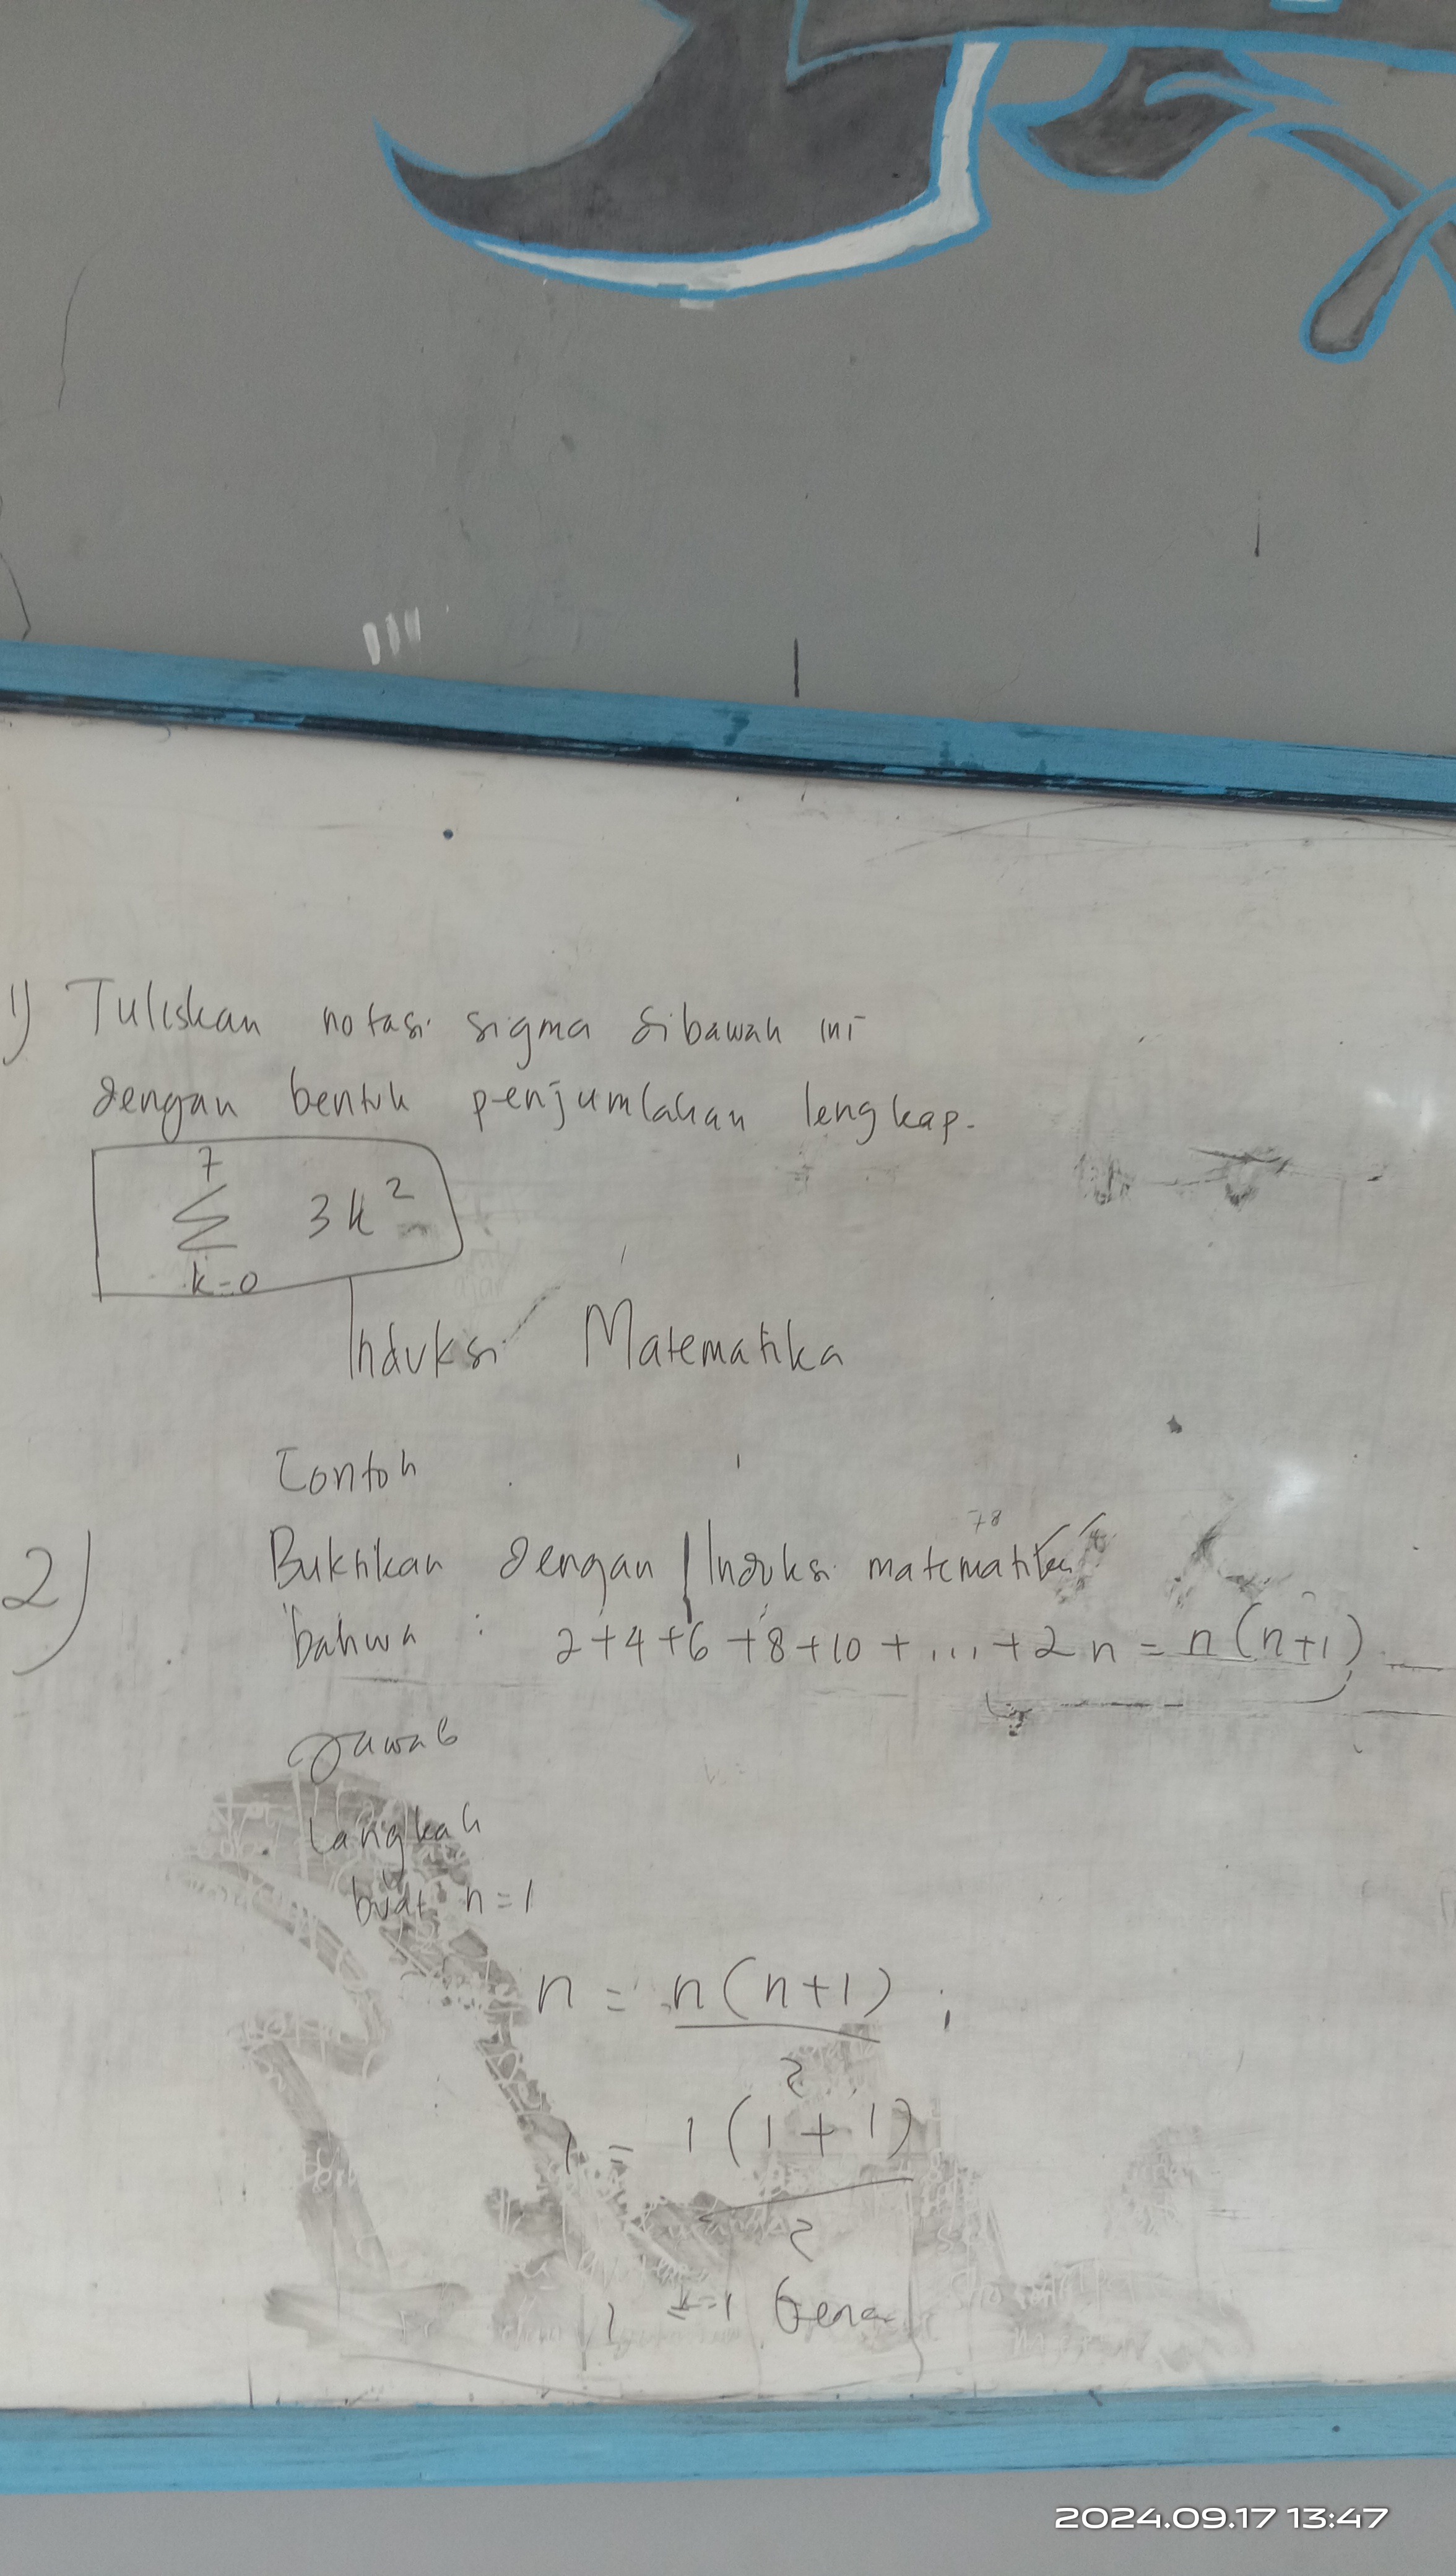 1) Tuliskan notasi sigma dibawah ini
dengan bentuk penjumlahan lengkap.
7
Σ 3k²
k=0
Induksi Matematika
Contoh
78
2) Buktikan dengan Induksi matematika
bahwa : 2+4+6+8+10+...+2n = n(n+1)
Jawab
Langkah
buat n=1
n = n(n+1) ;
2
1 = 1(1+1)
2
1 = 1 Benar
2024.09.17 13:47